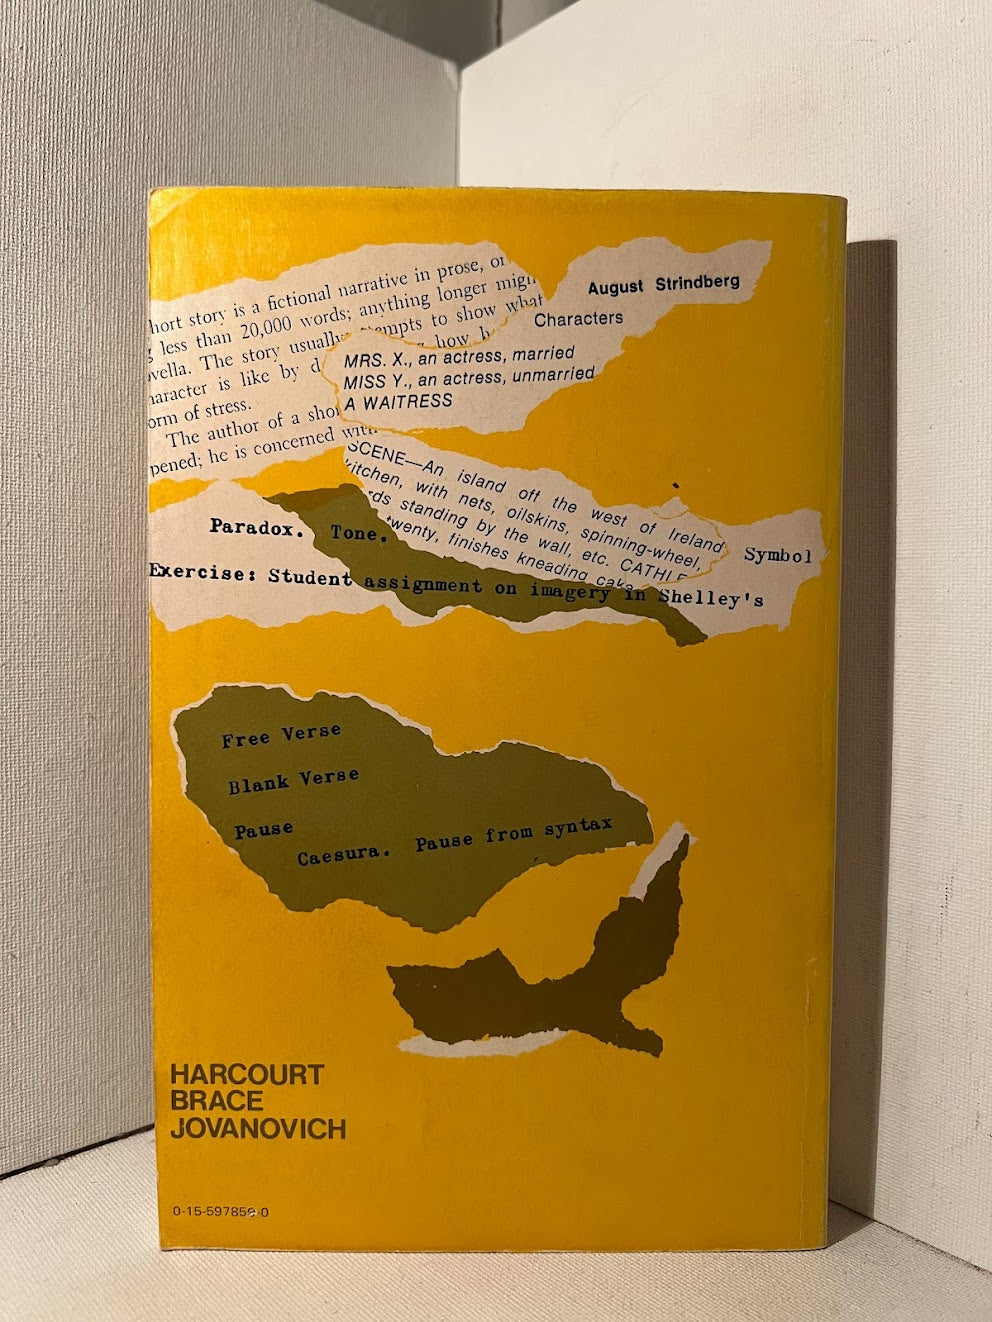 hort story is a fictional narrative in prose, or
less than 20,000 words; anything longer migh
vella. The story usually empts to show what
haracter is like by d how h
orm of stress.
The author of a shor
pened; he is concerned with
August Strindberg
Characters
MRS. X., an actress, married
MISS Y., an actress, unmarried
A WAITRESS
SCENE—An island off the west of Ireland
kitchen, with nets, oilskins, spinning-wheel,
rds standing by the wall, etc. CATHLE
twenty, finishes kneading cake
Paradox. Tone. Symbol
Exercise: Student assignment on imagery in Shelley's
Free Verse
Blank Verse
Pause
Caesura. Pause from syntax
HARCOURT
BRACE
JOVANOVICH